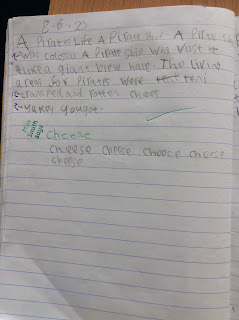 A Pirates Life A Pirate Ship. A Pirate Ship
was colossal A Pirate ship was vast it
like a giant blew hale. The living
areas for Pirates were real
cramped and rotten cheese
yukey yougot.
Cheese
cheese cheese cheese cheese
cheese